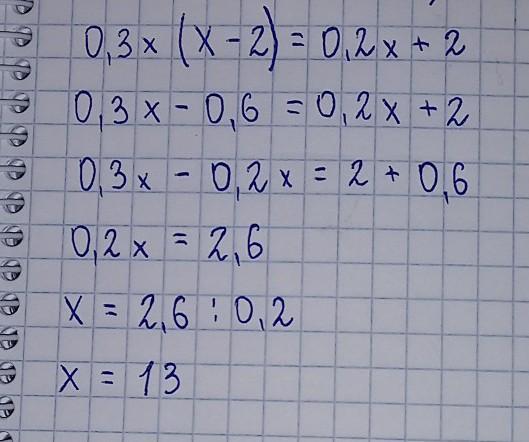 0,3x (x - 2) = 0,2x + 2
0,3x - 0,6 = 0,2x + 2
0,3x - 0,2x = 2 + 0,6
0,2x = 2,6
x = 2,6 : 0,2
x = 13